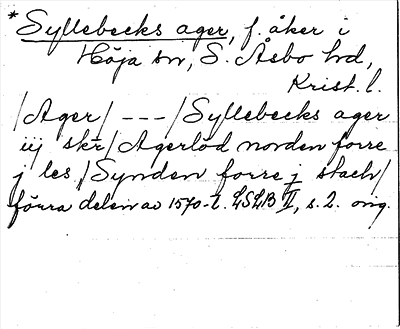 *Syllebecks ager, f. åker i
Höja sn, S. Åsbo hd,
Krist. l.
/Ager/ --- /Syllebecks ager
iij skr/ Agerlöd norden forre
j les /Synden forre j stach/
förra delen av 1570-t. LSLB II, s. 2. orig.